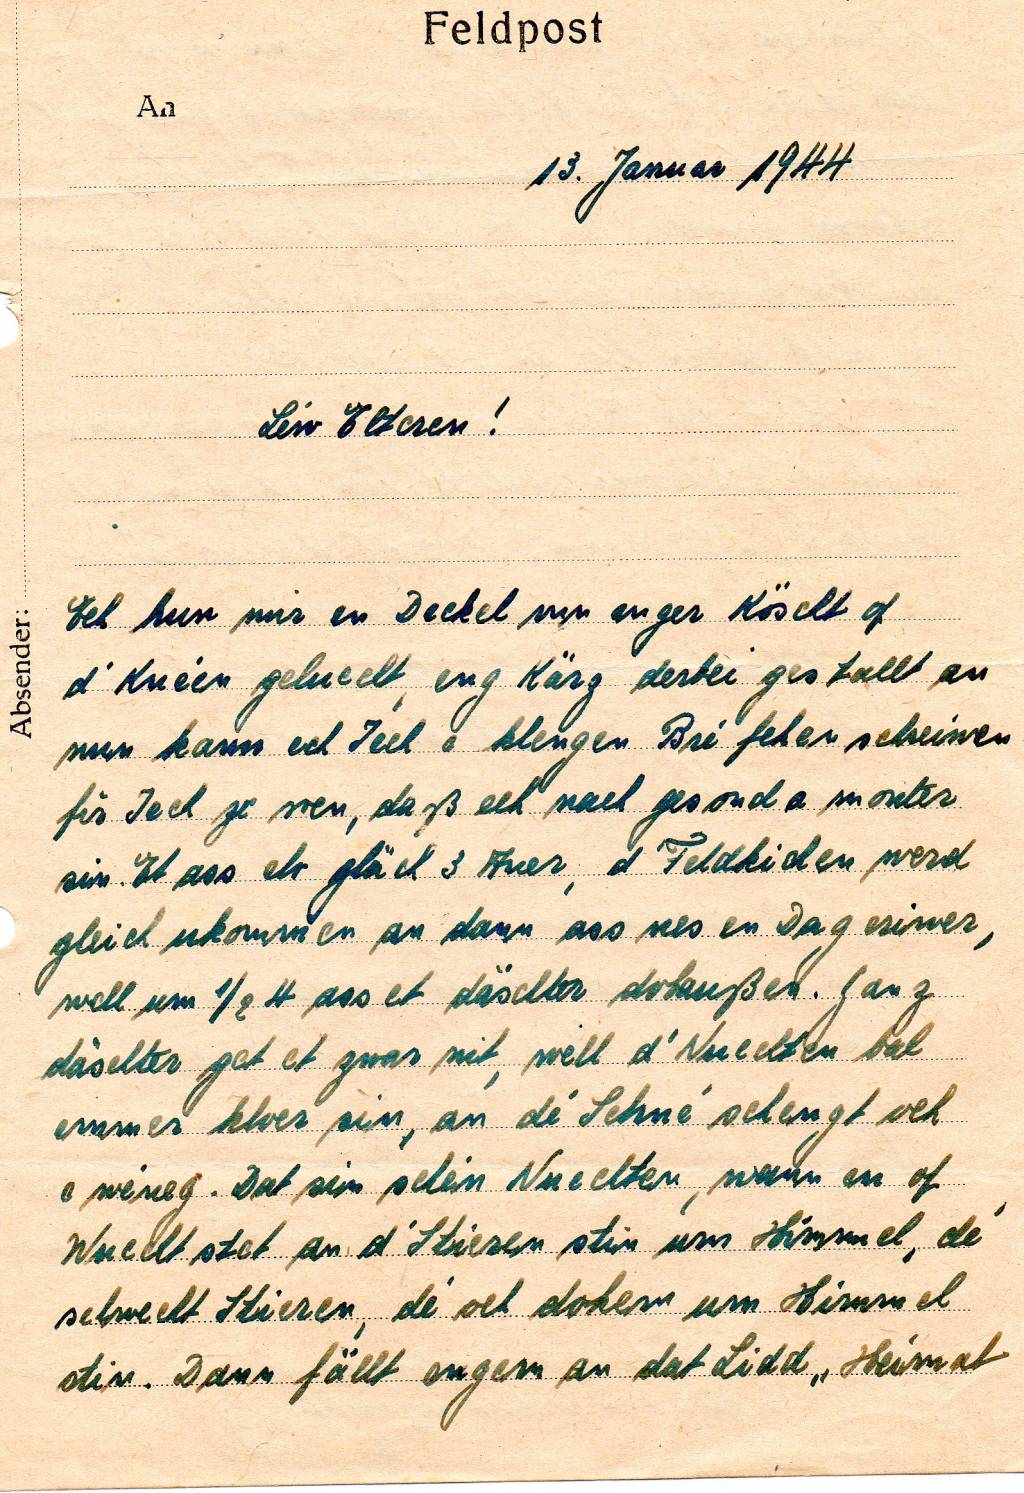 Feldpost
An
13. Januar 1944
Léiw Elteren!
Absender:
Ech hun mir en Deckel vun enger Köscht of
d'Knéen geluecht, eng Kärz derbei gestallt an
nun kann ech Iech e klengen Bréfchen schreiwen
fir Iech ze wen, daß ech nach gesond a monter
sin. Et ass elo gläch 3 Auer, d'Feldkichen werd
gleich ukommen an dann ass nes en Dag eriwer,
well um 1/2 4 ass et däschter dobaußen. Ganz
däschter get et zwar nit, well d'Nuechten bal
emmer kloer sin, an dé Schné schengt och
e wéneg. Dat sin schéin Nuechten, wann en of
Wuecht stet an d'Stieren stin um Himmel, dé
selwecht Stieren, dé och dohem um Himmel
stin. Dann fällt engem an dat Lidd „Heimat